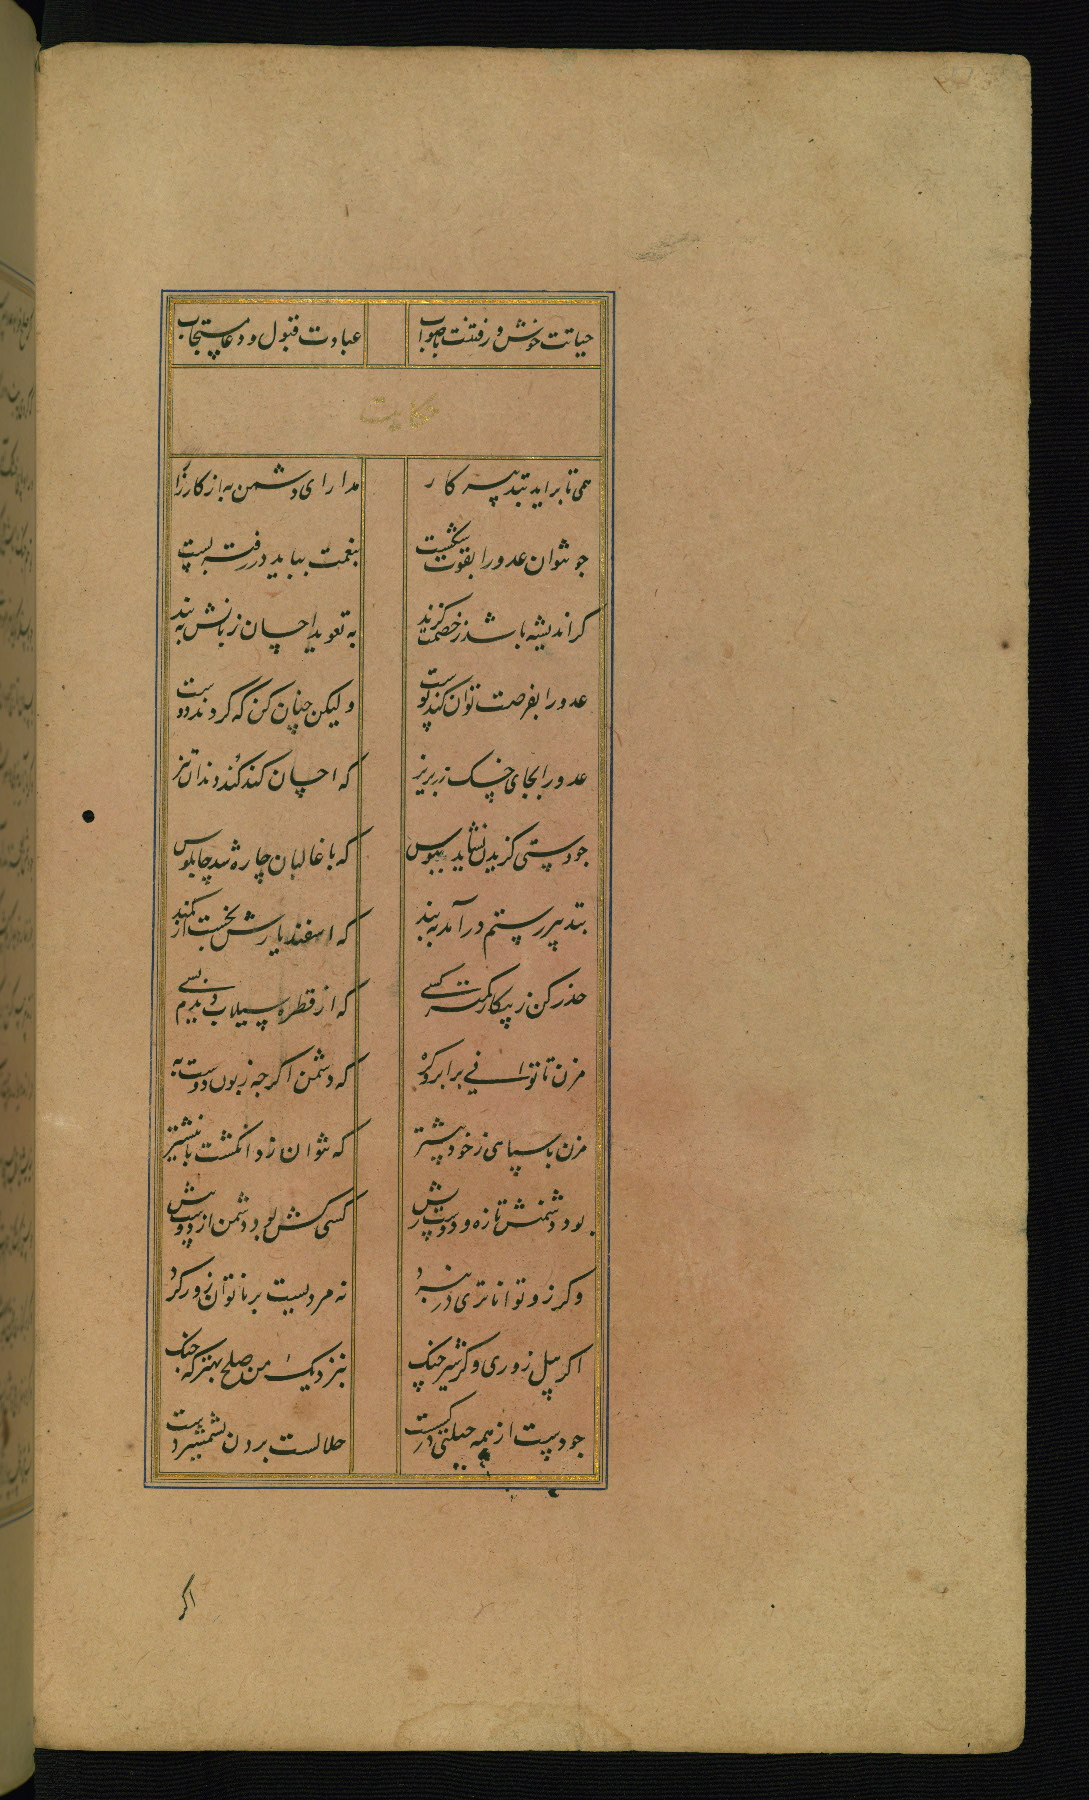 حیاتت خوش و رفتنت با صواب عبادت قبول و دعا مستجاب
حکایت
همی تا براید بتدبیر کار مدارای دشمن به از کارزار
جو نتوان عدو را بقوت شکست بنعمت بباید در فتنه بست
کر اندیشه باشد ز خصمت کزند به تعوید احسان زبانش به بند
عدو را بفرصت توان کند پوست ولیکن چنان کن که کردند دوست
عدو را بجای خسک زر بریز که احسان کند کند دندان تیز
جو دستی کزیدن نشاید ببوس که با غالبان چاره شد چابلوس
بتدبیر رستم در آمد به بند که اسفندیارش نجست از کمند
حذر کن ز پیکار کمتر کسی که از قطره سیلاب دیدم بسی
مزن تا توانی بر ابرو کره که دشمن اکر جه زبون دوست به
مزن با سپاهی ز خود بیشتر که نتوان زد انکشت با نیشتر
بود دشمنش تازه و دوست ریش کسی کش بود دشمن از دوست بیش
و کر زو تواناتری در نبرد نه مردیست بر ناتوان زور کرد
اکر پیل زوری و کر شیر جنک بنزدیک من صلح بهتر که جنک
جو دست از همه حیلتی در کسست حلالست بردن بشمشیر دست
اکر